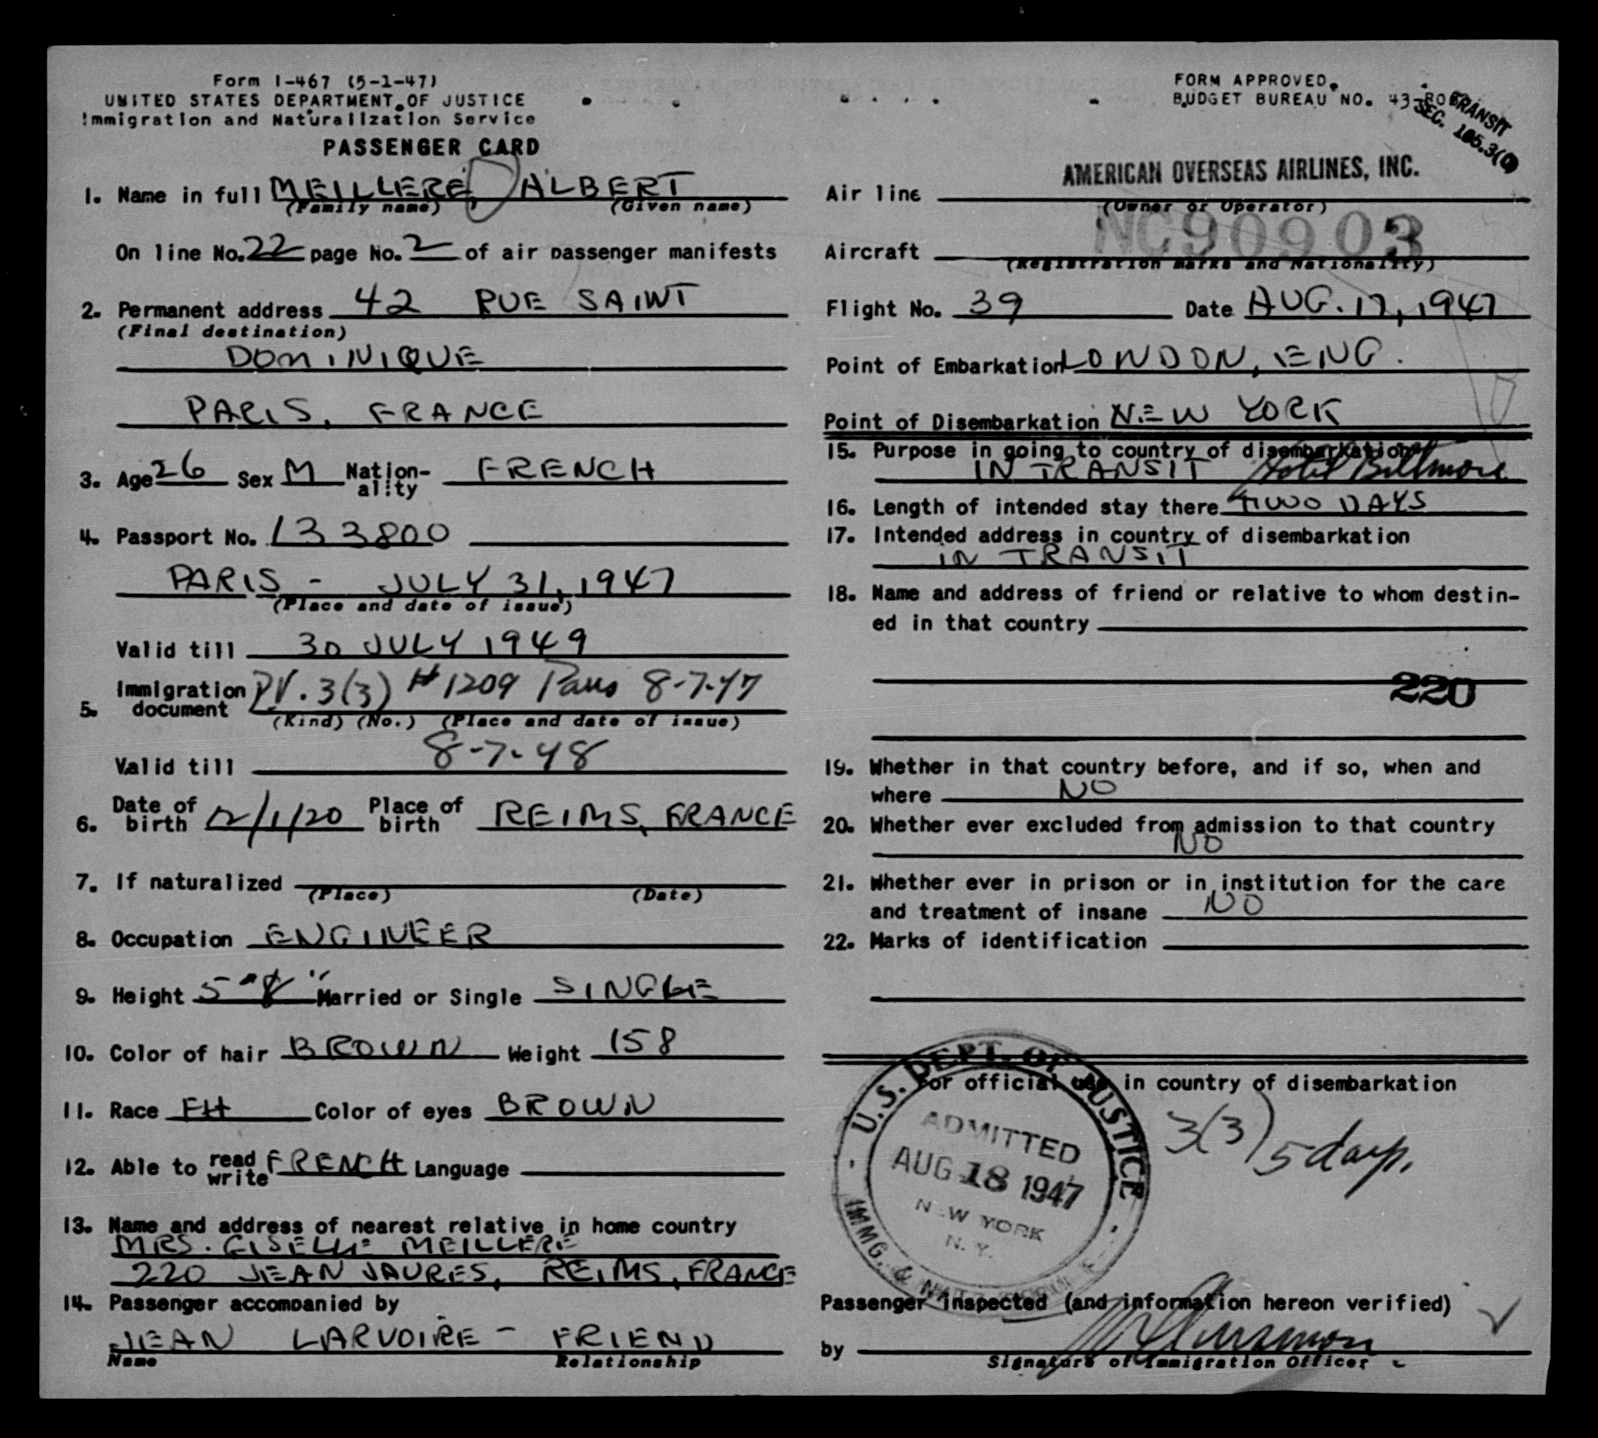 Form I-467 (5-1-47)
UNITED STATES DEPARTMENT OF JUSTICE
Immigration and Naturalization Service
PASSENGER CARD
1. Name in full MEILLERE, ALBERT
(Family name) (Given name)
On line No. 22 page No. 2 of air passenger manifests
2. Permanent address 42 RUE SAINT
(Final destination)
DOMINIQUE
PARIS, FRANCE
3. Age 26 Sex M Nation-ality FRENCH
4. Passport No. 133800
PARIS - JULY 31, 1947
(Place and date of issue)
Valid till 30 JULY 1949
5. Immigration document P.V. 3(3) # 1209 Paris 8-7-47
(Kind) (No.) (Place and date of issue)
Valid till 8-7-48
6. Date of birth 12/1/20 Place of birth REIMS, FRANCE
7. If naturalized
(Place) (Date)
8. Occupation ENGINEER
9. Height 5"8" Married or Single SINGLE
10. Color of hair BROWN Weight 158
11. Race FH Color of eyes BROWN
12. Able to read write FRENCH Language
13. Name and address of nearest relative in home country
MRS. GISELLE MEILLERE
220 JEAN JAURES, REIMS, FRANCE
14. Passenger accompanied by
JEAN LARVOIRE - FRIEND
Name Relationship
FORM APPROVED.
BUDGET BUREAU NO. 43-
TRANSIT
SEC.
AMERICAN OVERSEAS AIRLINES, INC.
Air line
(Owner or Operator)
Aircraft NC90903
(Registration marks and Nationality)
Flight No. 39 Date AUG. 17, 1947
Point of Embarkation LONDON, ENG.
Point of Disembarkation NEW YORK
15. Purpose in going to country of disembarkation
IN TRANSIT Hotel Biltmore
16. Length of intended stay there TWO DAYS
17. Intended address in country of disembarkation
IN TRANSIT
18. Name and address of friend or relative to whom destin-
ed in that country
220
19. Whether in that country before, and if so, when and
where NO
20. Whether ever excluded from admission to that country
NO
21. Whether ever in prison or in institution for the care
and treatment of insane NO
22. Marks of identification
For official use in country of disembarkation
U.S. DEPT. OF JUSTICE
ADMITTED
AUG 18 1947
NEW YORK
N. Y.
IMMG. &
3(3) 5 days.
Passenger inspected (and information hereon verified)
by
Signature of Immigration Officer